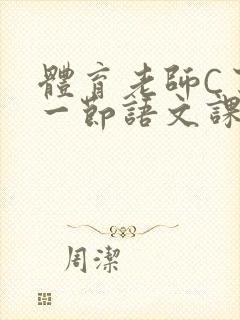 體育老師C
一節語文課
周潔